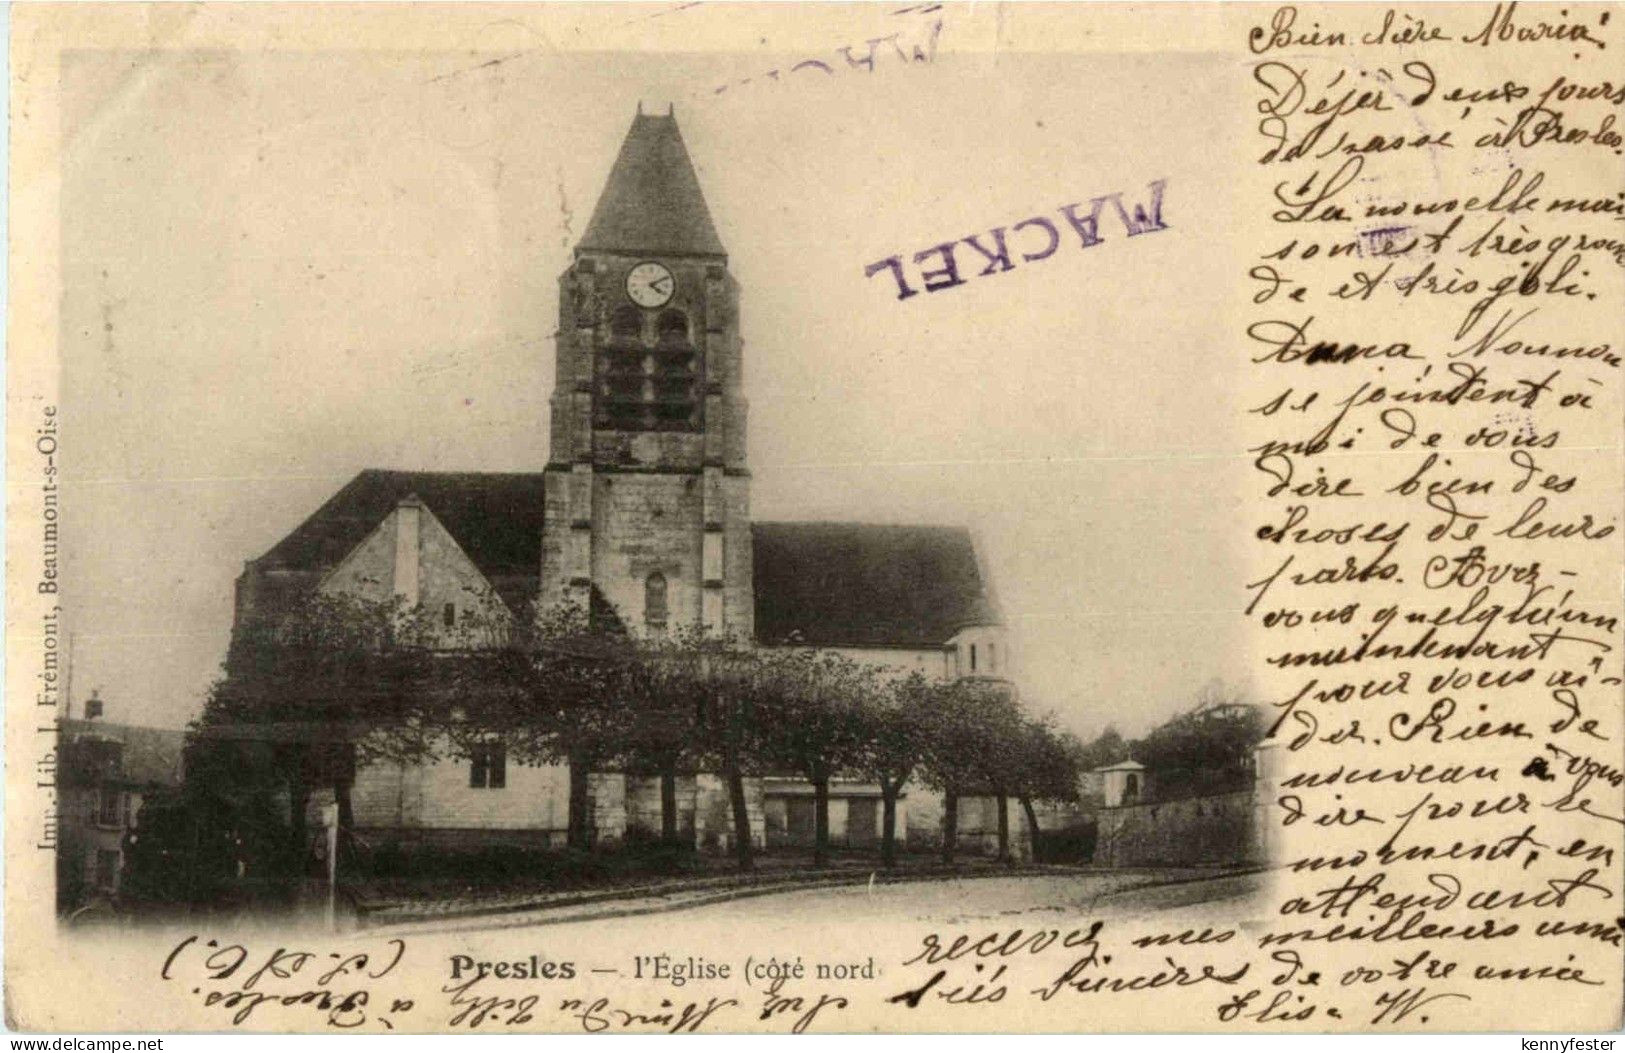 Bien chère Maria!
Déjà deux jours
de passé à Presles.
La nouvelle mai-
son est très gran
de et très joli.
Anna, Nounou
se joindent à
moi de vous
dire bien des
choses de leurs
parts. Avez-
vous quelqu'un
maintenant
pour vous ai-
der. Rien de
nouveau à vous
dire pour le
moment, en
attendant
recevez mes meilleurs ami
tiés sincères de votre amie
Elisa W.
MACKEL
MACK
Imp.-Lib. J. Frémont, Beaumont-s-Oise
Presles — l'Église (côté nord
chez Mme du Tilly à Presles.
(S. & O.)
delcampe.net
kennyfester